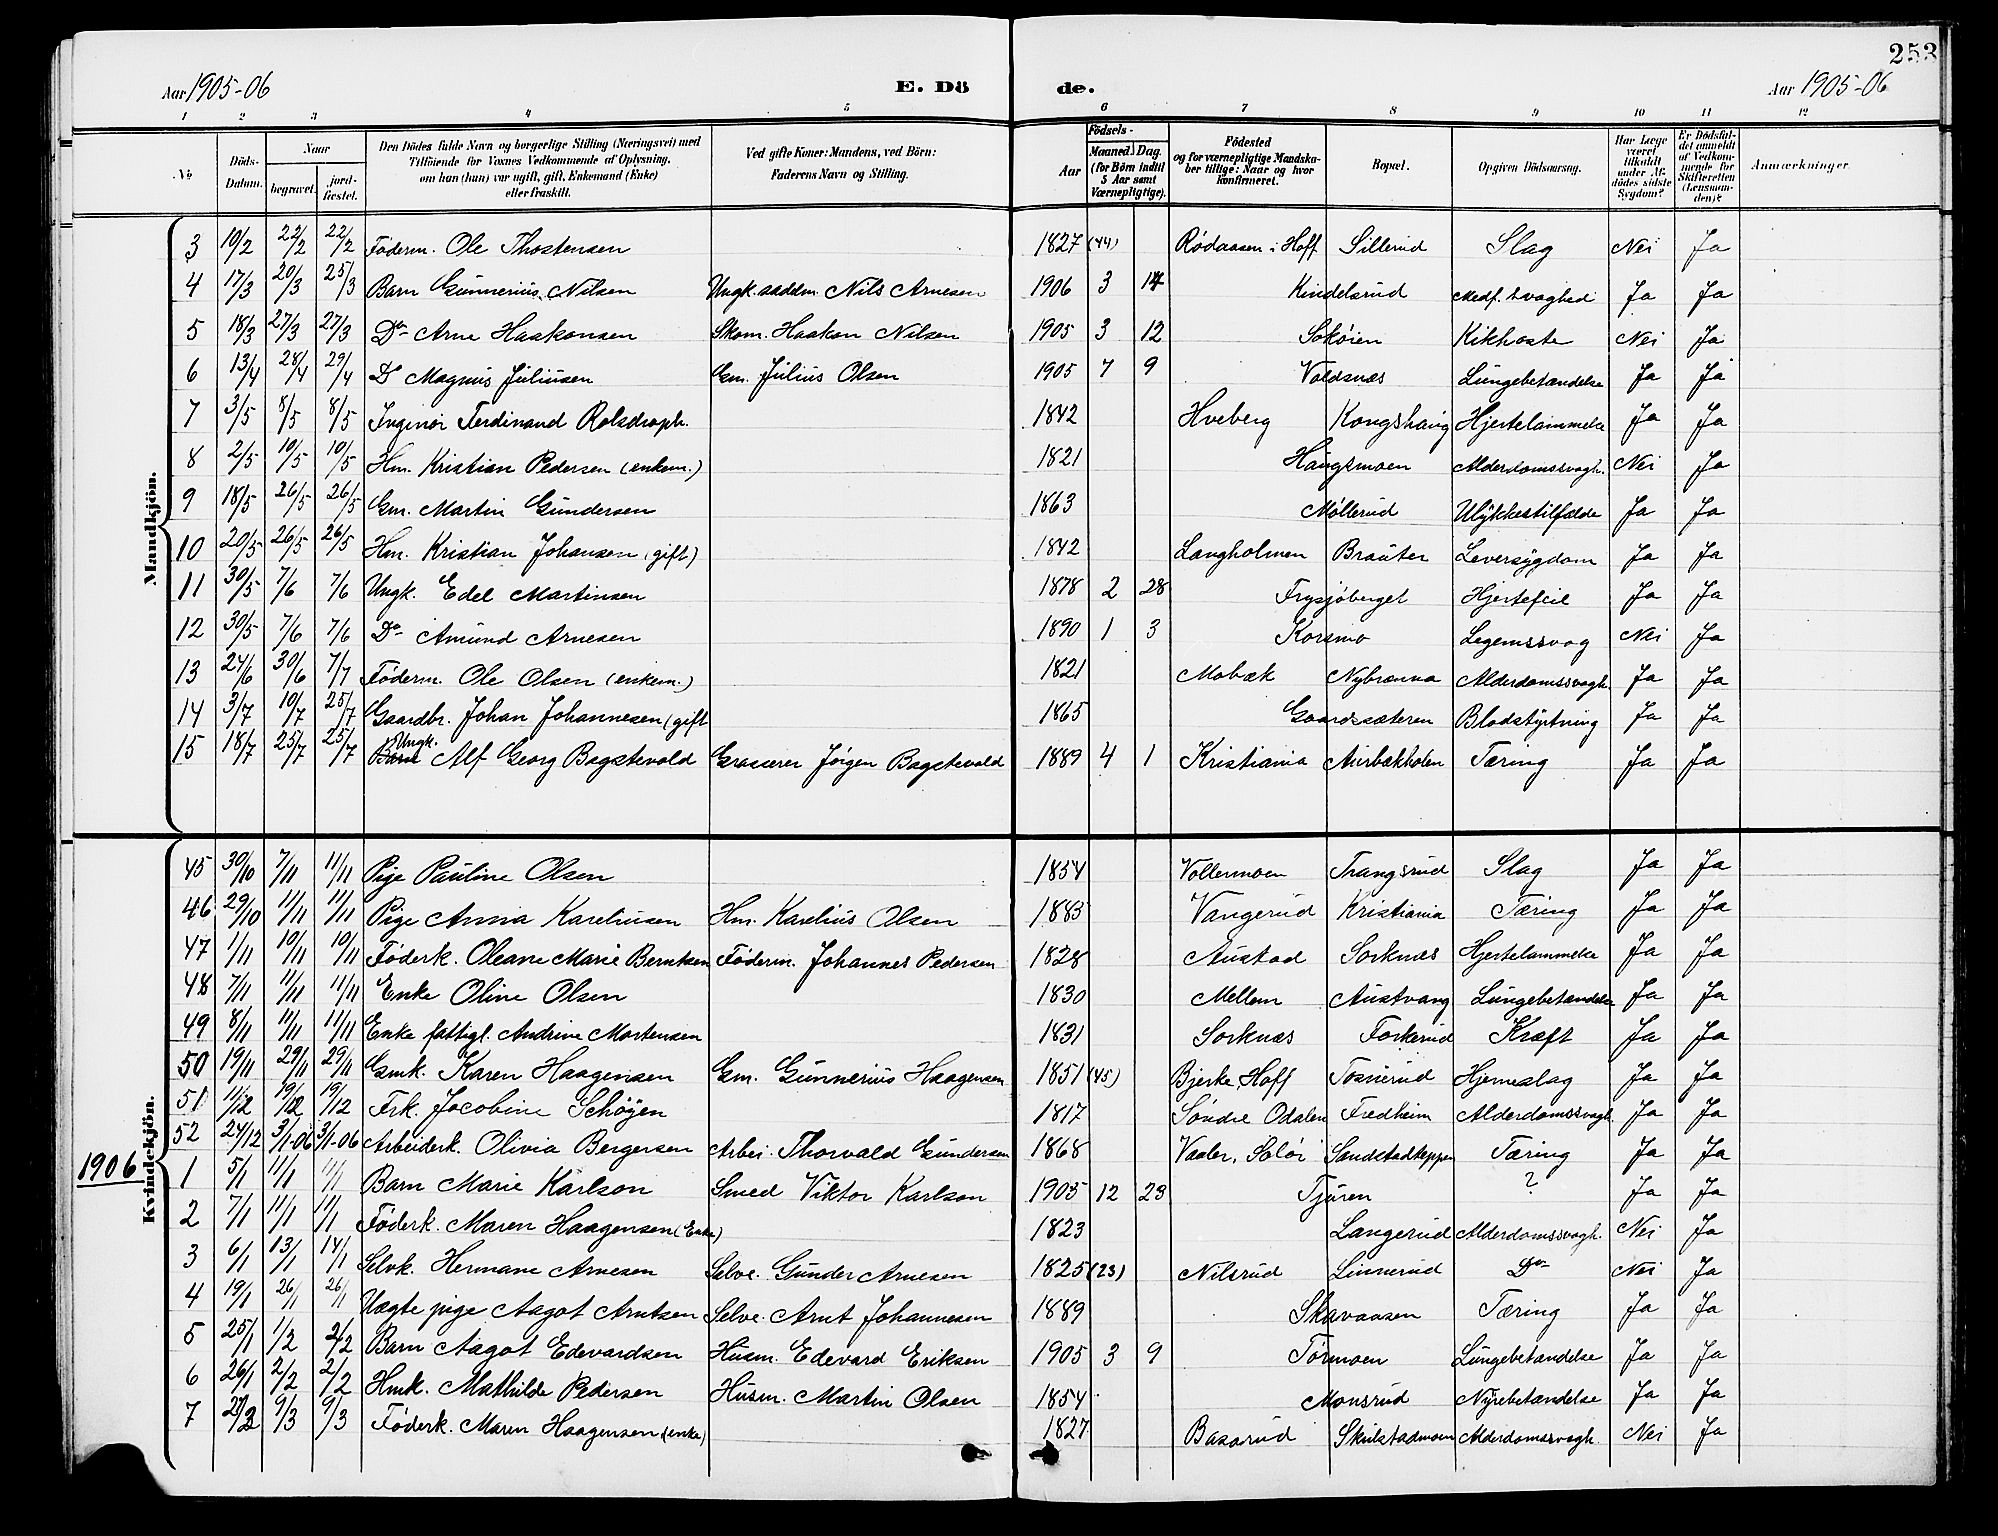 253
Aar 1905-06 E. Dö de. Aar 1905-06
1 2 3 4 5 6 7 8 9 10 11 12
№ Döds-Datum. Naar begravet. jordfæstet. Den Dödes fulde Navn og borgerlige Stilling (Næringsvei) med Tilföiende for Voxnes Vedkommende af Oplysning, om han (hun) var ugift, gift, Enkemand (Enke) eller fraskilt. Ved gifte Koner: Mandens, ved Börn: Faderens Navn og Stilling. Födsels- Aar Maaned. Dag. (for Börn indtil 5 Aar samt Værnepligtige). Födested og for værnepligtige Mandskaber tillige: Naar og hvor konfirmeret. Bopæl. Opgiven Dödsaarsag. Har Læge været tilkaldt under Afdödes sidste Sygdom? Er Dödsfaldet anmeldt af Vedkommende for Skifteretten (Lensmanden)? Anmærkninger.
Mandkjön.
3 19/2 22/2 22/2 Föderm. Ole Thostensen 1827 (44) Rødaasen i Hoff Sillerud Slag Nei Ja
4 17/3 20/3 25/3 Barn Gunnerius Nilsen Ungk. saddm. Nils Arnesen 1906 3 14 Kindelsrud Medf. svaghed Ja Ja
5 18/3 27/3 27/3 Do Arne Haakonsen Skom. Haakon Nilsen 1905 3 12 Sokøien Kikhoste Nei Ja
6 13/4 28/4 29/4 Do Magnus Juliusen Gm. Julius Olsen 1905 7 9 Voldsnæs Lungebetændelse Ja Ja
7 3/5 8/5 8/5 Inginør Ferdinand Rolsdroph. 1842 Hveberg Kongshaug Hjertelammelse Ja Ja
8 2/5 10/5 10/5 Hm. Kristian Pedersen (enkem.) 1821 Haugsmoen Alderdomssvagh. Nei Ja
9 18/5 26/5 26/5 Gm. Martin Gundersen 1863 Møllerud Ulykkestilfælde Ja Ja
10 20/5 26/5 26/5 Hm. Kristian Johansen (gift) 1842 Langholmen Brauter Leversygdom Ja Ja
11 30/5 7/6 7/6 Ungk. Edel Martinsen 1878 2 28 Frysjøberget Hjertefeil Ja Ja
12 30/5 7/6 7/6 Do Amund Arnesen 1890 1 3 Korsmo Legemssvag Nei Ja
13 24/6 30/6 7/7 Föderm. Ole Olsen (enkem.) 1821 Mobæk Nybrænna Alderdomssvagh. Ja Ja
14 3/7 10/7 25/7 Gaardbr. Johan Johannesen (gift 1865 Gaardssæteren Blodstyrtning Ja Ja
15 18/7 25/7 25/7 Barn Ungk. Alf Georg Bagstevold Grosserer Jørgen Bagstevold 1889 4 1 Kristiania Aurbækholen Tæring Ja Ja
Kvindekjön.
45 30/10 7/11 11/11 Pige Pauline Olsen 1854 Vollermoen Trangsrud Slag Ja Ja
46 29/10 11/11 11/11 Pige Anna Kareliusen Hm. Karelius Olsen 1883 Vangerud Kristiania Tæring Ja Ja
47 1/11 10/11 10/11 Föderk. Oleane Marie Berntsen Föderm. Johannes Pedersen 1828 Austad Sorknæs Hjertelammelse Ja Ja
48 7/11 11/11 11/11 Enke Oline Olsen 1830 Mellem Austvang Lungebetændelse Ja Ja
49 8/11 11/11 11/11 Enke fattigl. Andrine Mortensen 1831 Sorknæs Forkerud Kræft Ja Ja
50 19/11 29/11 29/11 Gmk. Karen Haagensen Gm. Gunnerius Haagensen 1851 (45) Bjerke, Hoff Tosnerud Hjerneslag Ja Ja
51 11/12 19/12 19/12 Frk. Jacobine Schøyen 1817 Søndre Odalen Fredheim Alderdomssvagh. Ja Ja
52 24/12 3/1-06 3/1-06 Arbeiderk. Olivia Bergersen Arbei. Thorvald Gundersen 1868 Vaaler, Solør Sandstadkeppen Tæring Ja Ja
1906
1 5/1 11/1 11/1 Barn Marie Karlson Smed Viktor Karlson 1905 12 23 Tjuren ? Ja Ja
2 7/1 11/1 11/1 Föderk. Maren Haagensen (Enke) 1823 Langerud Alderdomssvagh. Nei Ja
3 6/1 13/1 14/1 Selvk. Hermane Arnesen Selve. Gunder Arnesen 1825 (23) Nilsrud Linnerud Do Nei Ja
4 19/1 26/1 26/1 Uægte pige Aagot Arntsen Selve. Arnt Johannesen 1889 Skavaasen Tæring Ja Ja
5 25/1 1/2 2/2 Barn Aagot Edevardsen Husm. Edevard Eriksen 1905 3 9 Tørmoen Lungebetændelse Ja Ja
6 26/1 2/2 2/2 Hmk. Mathilde Pedersen Husm. Martin Olsen 1854 Monsrud Nyrebetændelse Ja Ja
7 27/2 9/3 9/3 Föderk. Maren Haagensen (enke) 1827 Basarud Skulstadmoen Alderdomssvagh. Nei Ja